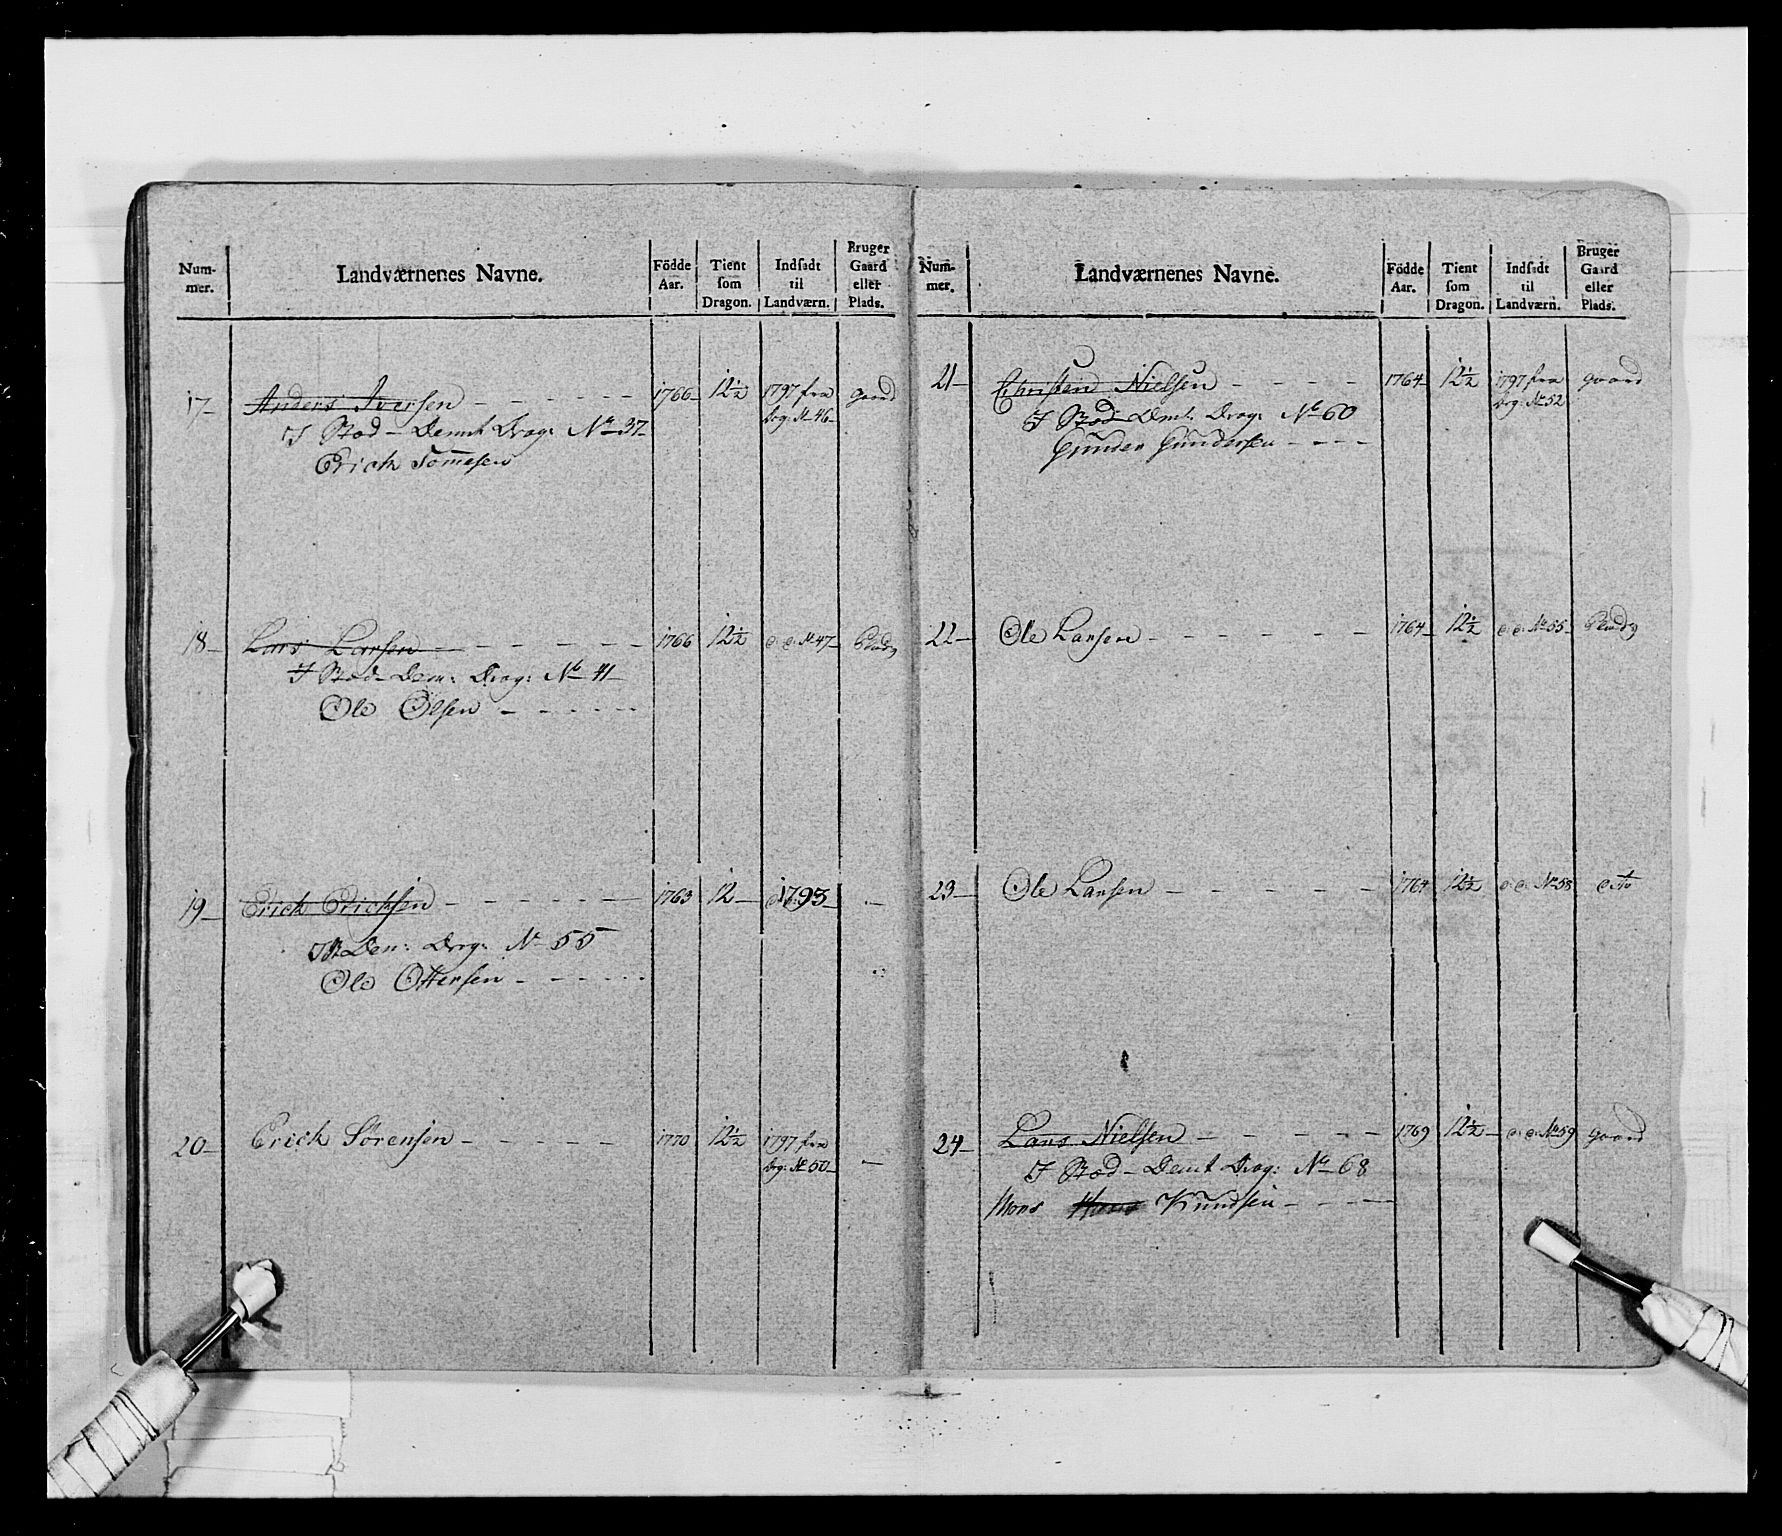 Num-
mer.
Landværnenes Navne.
Födde
Aar.
Tient
som
Dragon.
Indsadt
til
Landværn.
Bruger
Gaard
eller
Plads.
17- Anders Iversen - - - - - - 1766- 12½ 1797 fra gaard
I Stæd - Demt Drag: No 37- Drg: No 46-
Erich Tomesen
18- Lars Larsen - - - - - - 1766 12½ d: d: No 47-
I Stæd- Dem: Drag: No 41-
Ole Olsen - - - - -
19- Erich Erichsen - - - - - - 1763 12- 1793- -
Dem: Drag: No 55
Ole Ottersen - - - - -
20- Erich Sörensen - - - - - 1770 12½ 1797 fra
Drg: No 50- -
Num-
mer.
Landværnenes Navne.
Födde
Aar.
Tient
som
Dragon.
Indsadt
til
Landværn.
Bruger
Gaard
eller
Plads.
21- Christen Nielsen - - - - 1764- 12½ 1797 fra gaard
I Stæd- Demt: Drag: No 60 Drg: No 52
Gunder Gundersen - - - -
22- Ole Larsen - - - - - - 1764- 12½ d: d: No 55-
23- Ole Larsen - - - - - - 1764 12½ d: d: No 58 dto
24- Lars Nielsen - - - - - 1769 12½- d: d: No 59 gaard
I Stæd - Demt Drag: No 68
Mons Hans Knudsen - - - -